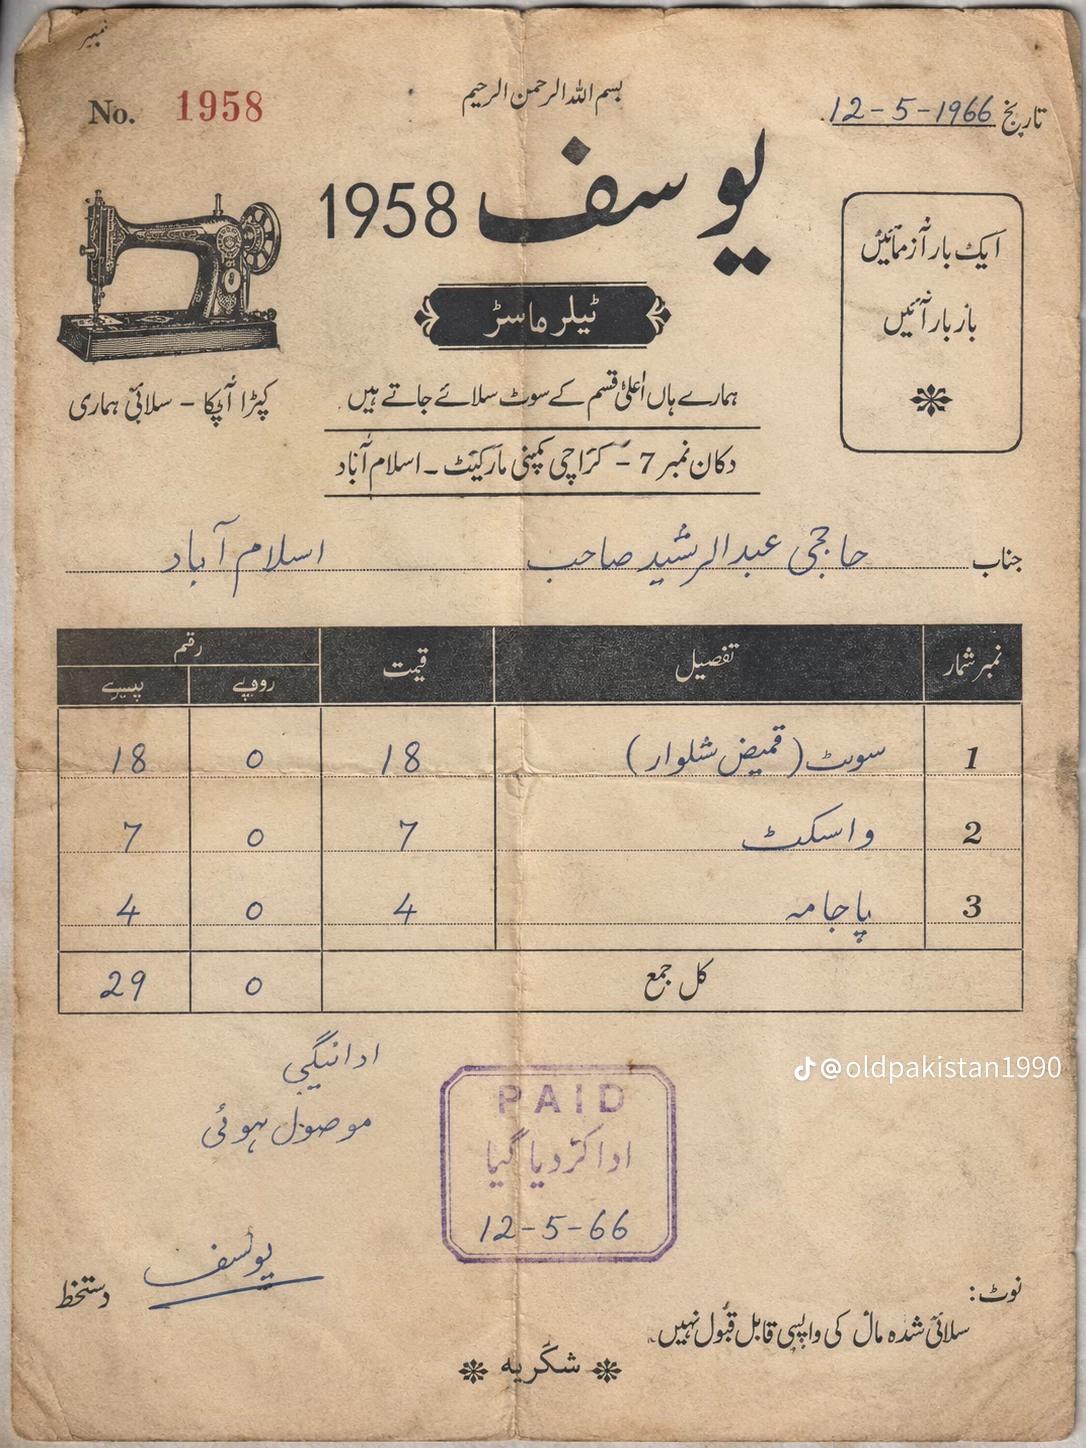 نمبر
No. 1958
بسم اللہ الرحمن الرحیم
تاریخ 12-5-1966
یوسف 1958
ٹیلر ماسٹر
ایک بار آزمائیں
بار بار آئیں
کپڑا آپکا - سلائی ہماری
ہمارے ہاں اعلیٰ قسم کے سوٹ سلائے جاتے ہیں
دکان نمبر 7 - کراچی کمپنی مارکیٹ - اسلام آباد
جناب حاجی عبدالرشید صاحب اسلام آباد
نمبر شمار تفصیل قیمت رقم
روپے پیسے
1 سوٹ (قمیض شلوار) 18 0 18
2 واسکٹ 7 0 7
3 پاجامہ 4 0 4
کل جمع 0 29
ادائیگی
موصول ہوئی
PAID
ادا کر دیا گیا
12-5-66
@oldpakistan1990
دستخط یوسف
نوٹ:
سلائی شدہ مال کی واپسی قابل قبول نہیں۔
شکریہ